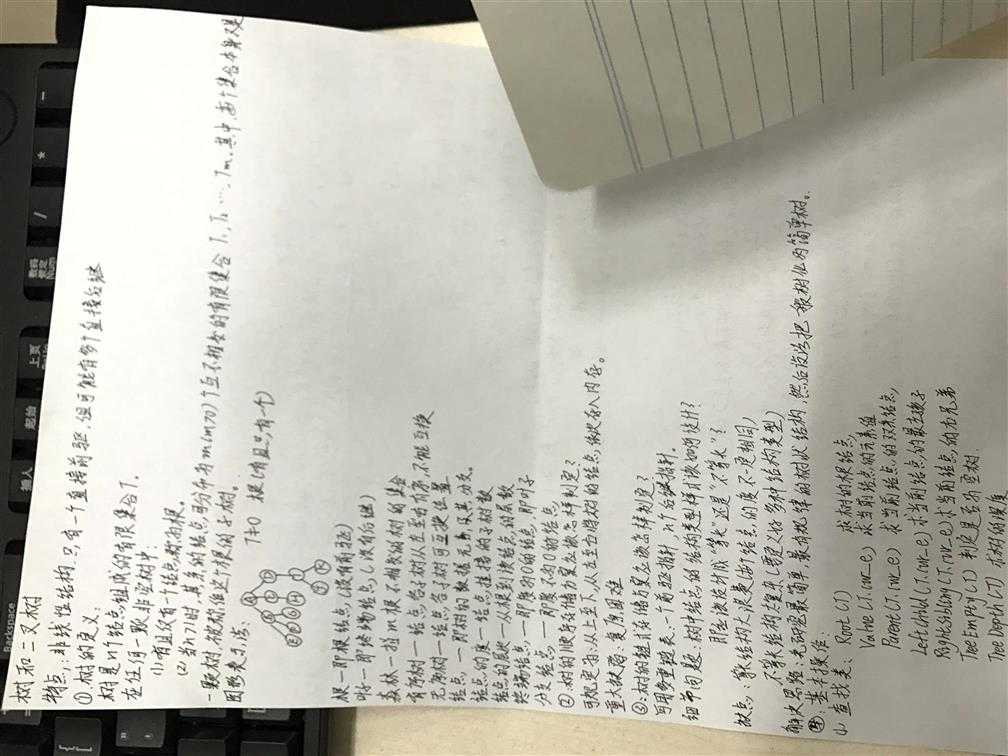 树和二叉树
特点:非线性结构,只有一个直接前驱,但可能有多个直接后继
① 树的定义:
树是n个结点组成的有限集合T.
在任何一颗非空树中:
(1) 有且仅有一个结点称为根.
(2) 当n>1时,其余的结点可分为m(m>0)个互不相交的有限集合T₁,T₂,…,Tm.其中,每个集合本身又是
一颗树,被称作这个根的子树.
图形表示法:
T=0 根(有且只有一个)
A
B C D
根—即根结点(没有前驱)
叶子—即终端结点(没有后继)
森林—指m棵不相交的树的集合
有序树—结点各子树从左至右有序,不能互换
无序树—结点各子树可互换位置.
结点—即树的数据元素及其分支.
结点的度—结点挂接的子树数
结点的层次—从根到该结点的层数
终端结点—即度为0的结点,即叶子
分支结点—即度不为0的结点
② 树的顺序存储方案应该怎样制定?
可规定为:从上至下,从左至右将树的结点依次存入内存.
重大缺陷:复原困难
③ 树的链式存储方案应该怎样制定?
可用多重链表:一个前驱指针,n个后继指针.
细节问题:树中结点的结构类型样式该如何设计?
即应该设计成“等长”还是“不等长”?
缺点:等长结构太浪费(每个结点的度不一定相同)
不等长结构太复杂,要定义好多种结构类型)
解决思维:先研究最简单、最有规律的树状结构,然后设法把一般树化为简单树.
④ 基本操作:
(1) 查找类: Root (T) 求树的根结点,
Value (T, cur_e) 求当前结点的元素值
Parent (T, cur_e) 求当前结点的双亲结点,
LeftChild (T, cur_e) 求当前结点的最左孩子
RightSibling (T, cur_e) 求当前结点的右兄弟
TreeEmpty (T) 判定是否为空树.
TreeDepth (T) 求树的深度
Backspace
插入
起始
上页
数码
锁定
Num
/
*
−